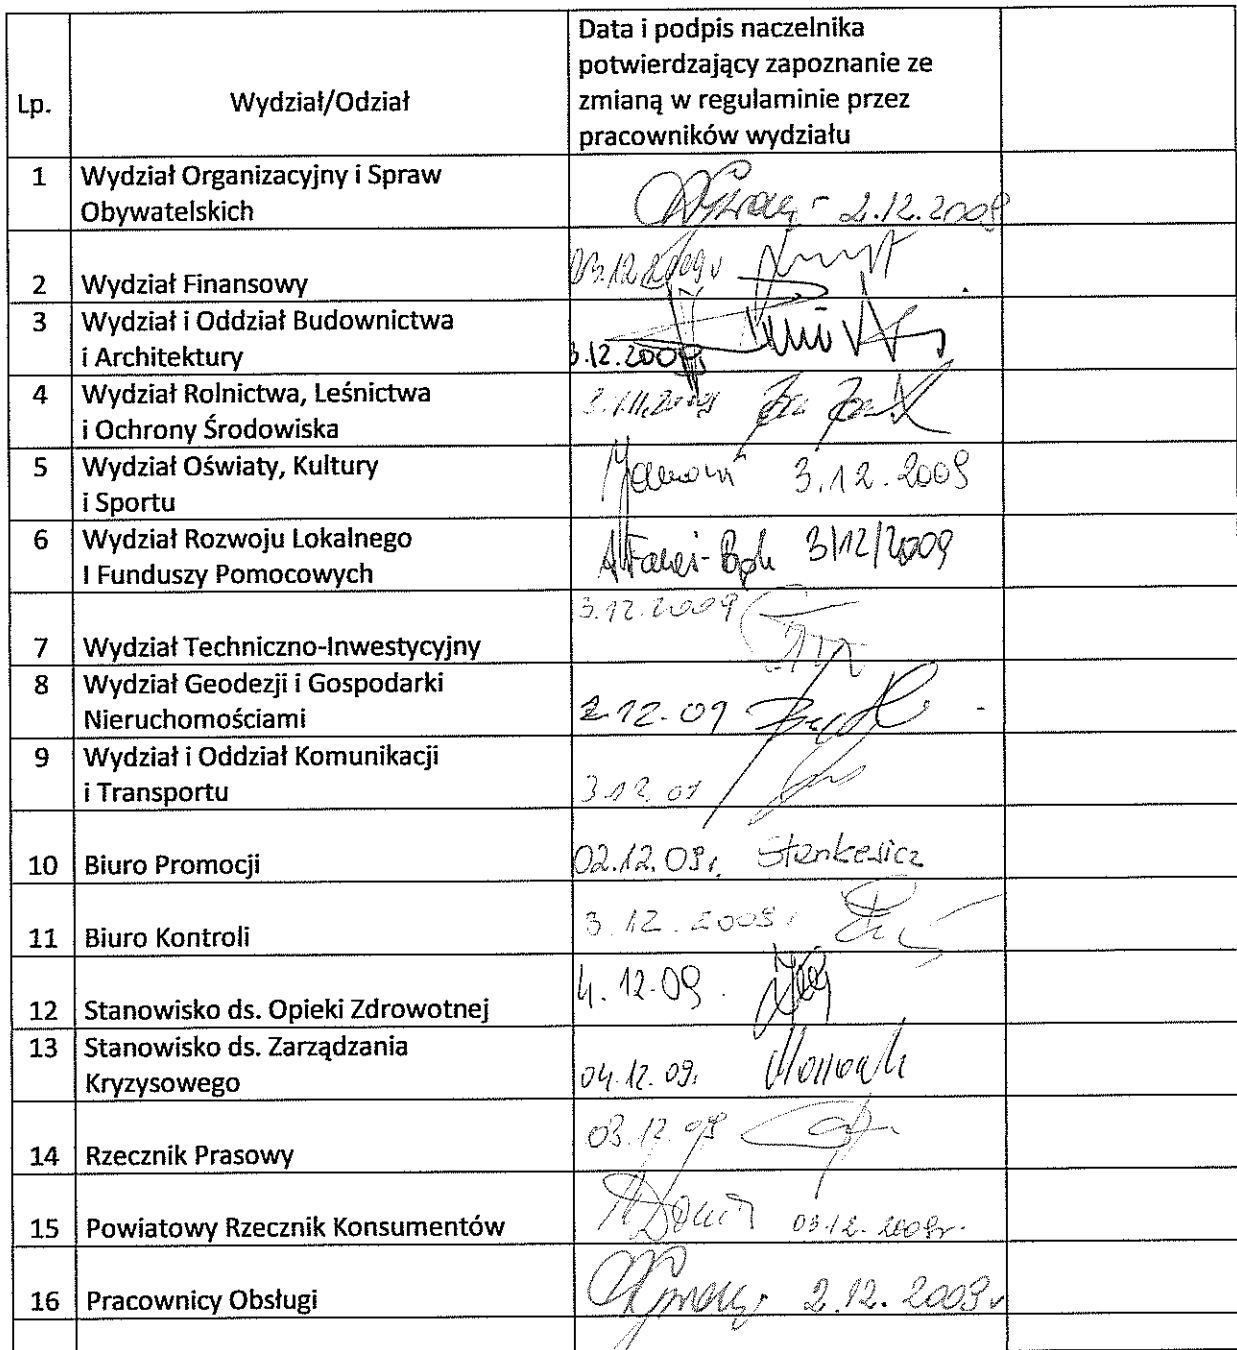 Lp.
Wydział/Odział
Data i podpis naczelnika
potwierdzający zapoznanie ze
zmianą w regulaminie przez
pracowników wydziału
1
Wydział Organizacyjny i Spraw
Obywatelskich
2.12.2009
2
Wydział Finansowy
03.12.2009r
3
Wydział i Oddział Budownictwa
i Architektury
3.12.2009
4
Wydział Rolnictwa, Leśnictwa
i Ochrony Środowiska
5
Wydział Oświaty, Kultury
i Sportu
3.12.2009
6
Wydział Rozwoju Lokalnego
I Funduszy Pomocowych
3/12/2009
7
Wydział Techniczno-Inwestycyjny
3.12.2009
8
Wydział Geodezji i Gospodarki
Nieruchomościami
2.12.09
9
Wydział i Oddział Komunikacji
i Transportu
3.12.09
10
Biuro Promocji
02.12.09r. Stankewicz
11
Biuro Kontroli
3.12.2009r
12
Stanowisko ds. Opieki Zdrowotnej
4.12.09.
13
Stanowisko ds. Zarządzania
Kryzysowego
04.12.09.
14
Rzecznik Prasowy
03.12.09
15
Powiatowy Rzecznik Konsumentów
03.12.2009r.
16
Pracownicy Obsługi
2.12.2009r